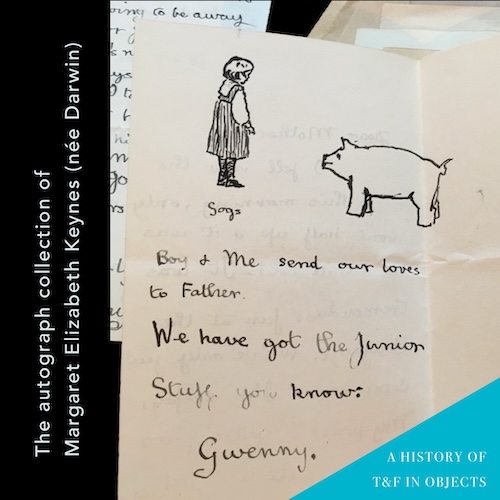 The autograph collection of
Margaret Elizabeth Keynes (née Darwin)
to be away
Sogs
Boy & Me send our loves
to Father.
We have got the Junior
Stuff you know:
Gwenny.
A HISTORY OF
T&F IN OBJECTS